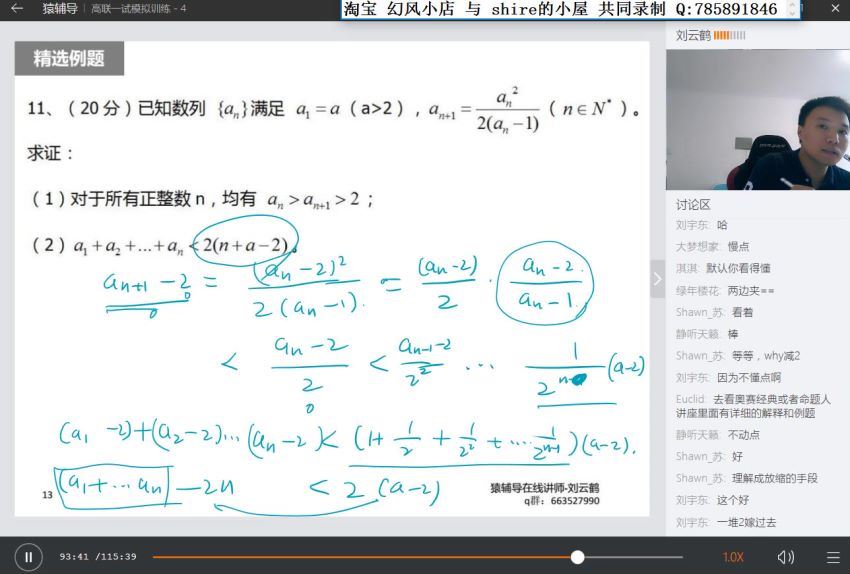 猿辅导 | 高联一试模拟训练 - 4
淘宝 幻风小店 与 shire的小屋 共同录制 Q:785891846
精选例题
11、（20 分）已知数列 {aₙ}满足 a₁ = a （a>2），aₙ₊₁ = aₙ² / 2(aₙ−1) （ n∈N* ）。
求证：
（1）对于所有正整数 n，均有 aₙ > aₙ₊₁ > 2；
（2）a₁ + a₂ + ... + aₙ < 2(n+a−2)。
aₙ₊₁ − 2 = (aₙ − 2)² / 2(aₙ − 1) = (aₙ−2) / 2 · aₙ − 2 / aₙ − 1
< aₙ − 2 / 2 < aₙ₋₁−2 / 2² ... 1 / 2ⁿ (a−2)
(a₁ −2)+(a₂−2)...(aₙ−2)< (1+ 1/2 + 1/2² + .... 1/2ⁿ⁻¹)(a−2).
(a₁+...aₙ) −2n < 2 (a−2)
13
猿辅导在线讲师-刘云鹤
q群：663527990
刘云鹤
讨论区
刘宇东: 哈
大梦想家: 慢点
淇淇: 默认你看得懂
绿年楼花: 两边夹==
Shawn_苏: 看着
静听天籁: 棒
Shawn_苏: 等等，why减2
刘宇东: 因为不懂点啊
Euclid: 去看奥赛经典或者命题人
讲座里面有详细的解释和例题
静听天籁: 不动点
Shawn_苏: 好
Shawn_苏: 理解成放缩的手段
刘宇东: 这个好
刘宇东: 一堆2嫁过去
93:41 /115:39
1.0X